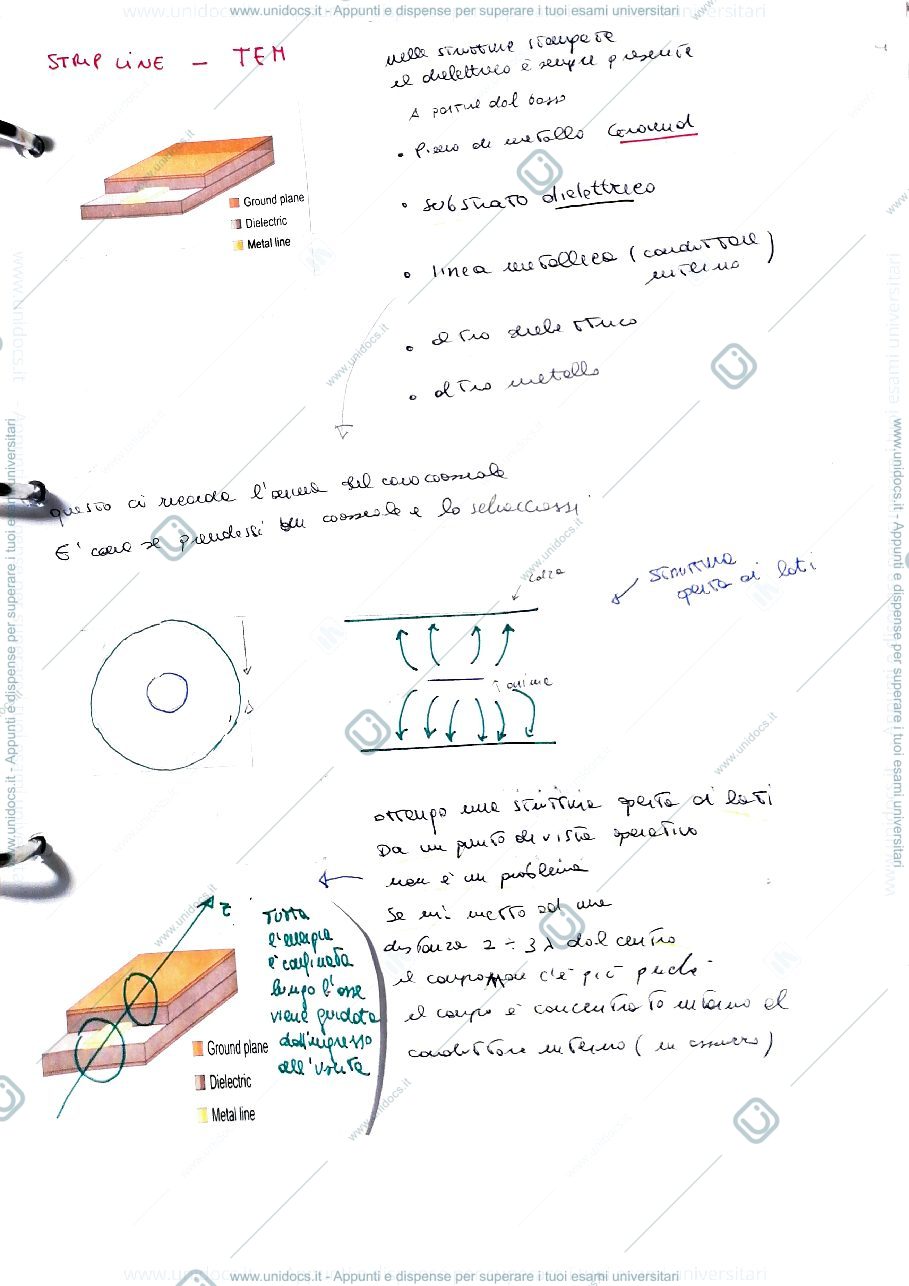 www.unidocs.it - Appunti e dispense per superare i tuoi esami universitari
STRIP LINE - TEM
nelle strutture stampate
il dielettrico è sempre presente
A partire dal basso
• piano di metallo Ground
• substrato dielettrico
• linea metallica (conduttore
interno)
• altro dielettrico
• altro metallo
Ground plane
Dielectric
Metal line
questo ci ricorda l'anima del cavo coassiale
E' come se prendessi un coassiale e lo schiacciassi
calza
struttura
aperta ai lati
anima
ottengo una struttura aperta ai lati
Da un punto di vista operativo
non è un problema
Se mi metto ad una
distanza 2 ÷ 3 λ dal centro
il campo non c'è più perché
il campo è concentrato intorno al
conduttore interno (in azzurro)
z
Tutta
l'energia
è confinata
lungo l'asse
viene guidata
dall'ingresso
all'uscita
Ground plane
Dielectric
Metal line
www.unidocs.it - Appunti e dispense per superare i tuoi esami universitari